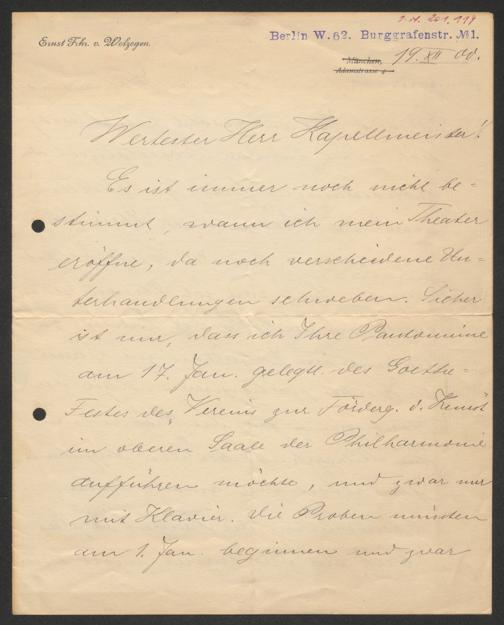 I.N. 201.119
Ernst Frhr. v. Wolzogen.
Berlin W. 62. Burggrafenstr. №1.
München,
Adamstrasse
19. XII 00.
Wertester Herr Kapellmeister!
Es ist immer noch nicht be-
stimmt, wann ich mein Theater
eröffne, da noch verschiedene Un-
terhandlungen schweben. Sicher
ist nur, dass ich Ihre Pantomime
am 17. Jan. gelegtl. des Goethe-
Festes des Vereins zur Förderg. d. Kunst
im oberen Saale der Philharmonie
aufführen möchte, und zwar nur
mit Klavier. Die Proben müssten
am 1. Jan. beginnen und zwar